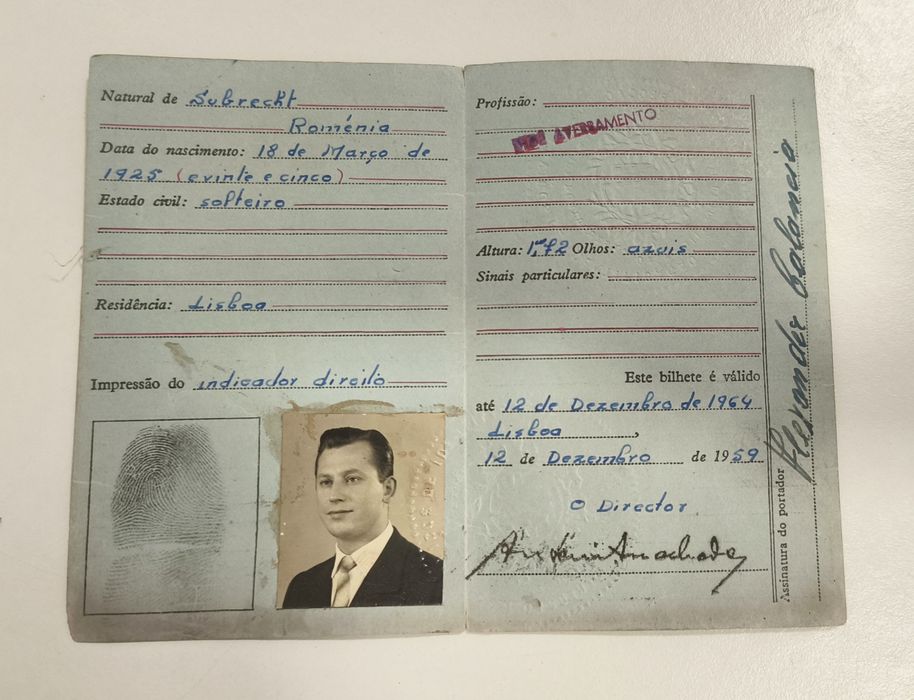 Natural de Subrecht
Roménia
Data do nascimento: 18 de Março de
1925 (e vinte e cinco)
Estado civil: solteiro
Residência: Lisboa
Impressão do indicador direito
Profissão:
AVERBAMENTO
Altura: 1,m72 Olhos: azuis
Sinais particulares:
Este bilhete é válido
até 12 de Dezembro de 1964
Lisboa,
12 de Dezembro de 1959
O Director
Assinatura do portador
Alexander